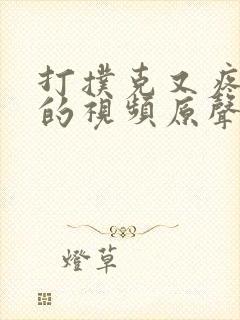 打撲克又疼
的視頻原聲
燈草